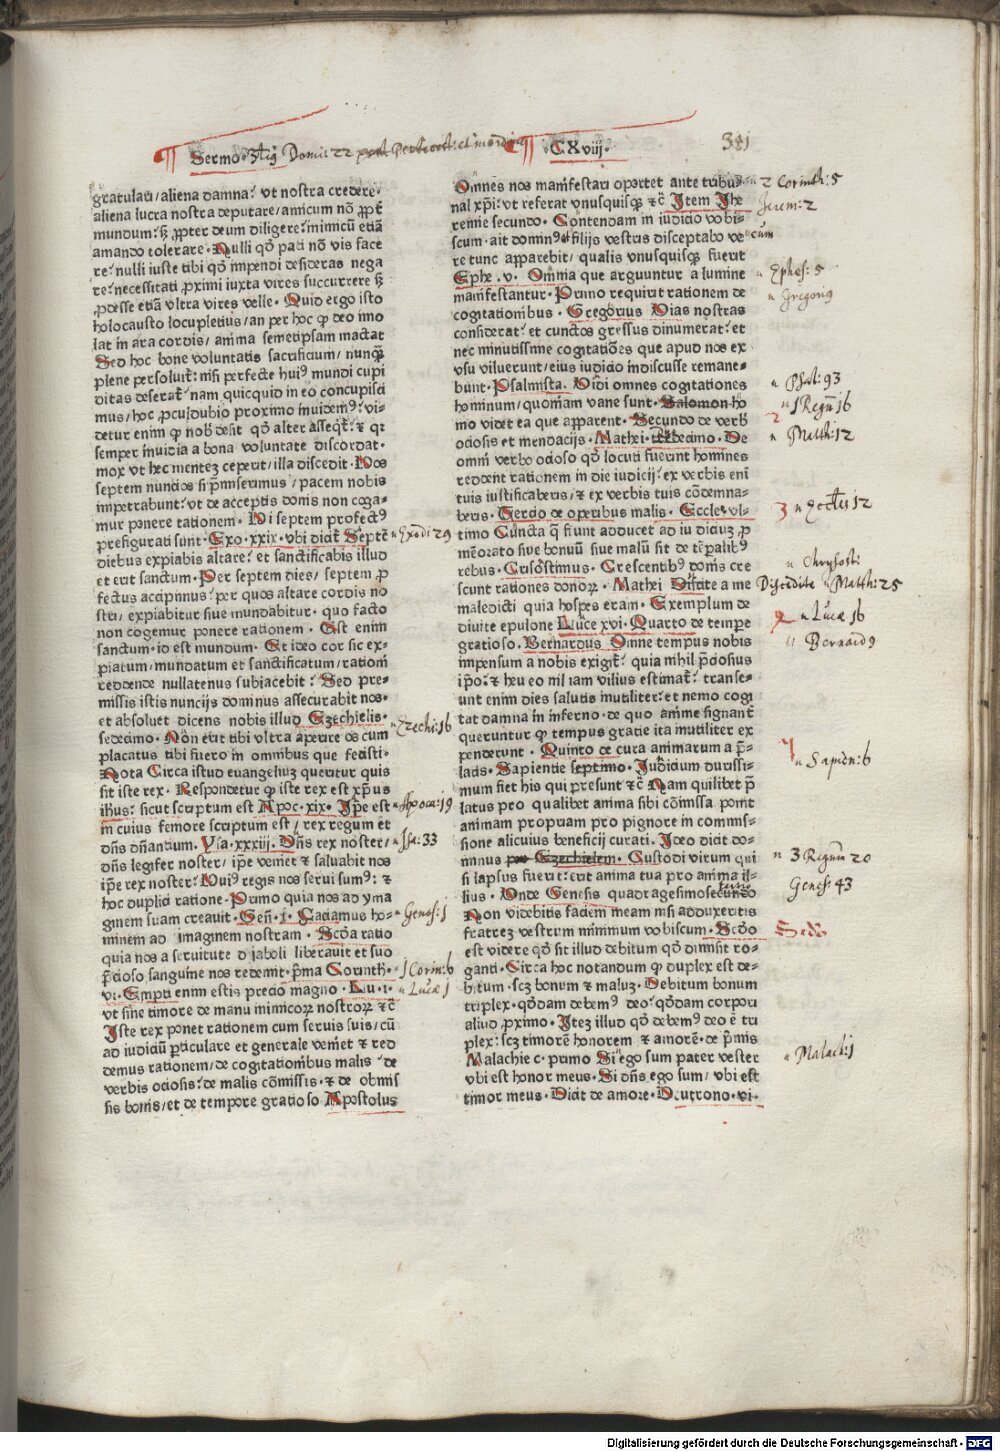 Sermo · Domi: 22 post Pentecost: ·CXviij·
gratulari/aliena damna? vt nostra credere·
aliena lucra nostra deputare/amicum nõ ꝓpt̃
mundum? sꝫ ꝓpter deum diligere? inimicũ etiã
amando tolerare· Nulli qð pati nõ vis face
re? nulli iuste tibi qð impendi desideras nega
re? necessitati ꝓximi iuxta vires succurrere sꝫ
ꝓdesse etiã vltra vires velle· Quid ergo isto
holocausto locupletius/an per hoc ꝙ deo imo
lat in ara cordis/anima semetipsam mactat
Sed hoc bone voluntatis sacrificium/nunqꝫ
plene persoluit̃: nisi perfecte huiꝰ mundi cupi
ditas deserat̃? nam quicquid in eo concupisci
mus/hoc ꝓculdubio proximo inuidemꝰ? vi-
detur enim ꝙ nob̃ desit qð alter asseqt̃? ⁊ qꝛ
semper inuidia a bona voluntate discordat·
mox vt hec mentez ceperit/illa discedit· Nos
septem nuncios si p̃miserimus/pacem nobis
impetrabunt? vt de acceptis donis non coga-
mur ponere rationem· Hi septem profectꝰ
prefigurati sunt· Exo·xxix·vbi dicit̃ Septẽ
diebus expiabis altare? et sanctificabis illud
et erit sanctum· Per septem dies/septem ꝓ
fectus accipimus? per quos altare cordis no
stri/expiabitur siue mundabitur· quo facto
non cogemur ponere rationem· Est enim
sanctum·id est mundum· Et ideo cor sic ex-
piatum/mundatum et sanctificatum/rationi
reddende nullatenus subiacebit? Sed pre-
missis istis nuncijs dominus assecurabit nos·
et absoluet dicens nobis illud Ezechielis·
sedecimo· Non erit tibi vltra aperire os cum
placatus tibi fuero in omnibus que fecisti·
Nota Circa istud euangeliuz queritur quis
sit iste rex· Respondetur ꝙ iste rex est xp̃us
ihus? sicut scriptum est Apoc·xix· Ip̃e est
in cuius femore scriptum est/rex regum et
dñs dñantium. Ysa·xxxiij· Dñs rex noster/
dñs legifer noster/ip̃e veniet ⁊ saluabit nos
ip̃e rex noster? Huiꝰ regis nos serui sumꝰ: ⁊
hoc duplici ratione· Primo quia nos ad yma
ginem suam creauit· Gen̄·j· Faciamus ho-
minem ad imaginem nostram· Scða ratio
quia nos a seruitute diaboli liberauit et suo
p̃cioso sanguine nos redemit· p̃ma Corinth·
vi· Empti enim estis precio magno· Lu·i·
vt sine timore de manu inimicoꝝ nostroꝝ ⁊c̃
Iste rex ponet rationem cum seruis suis/cũ
ad iudiciũ ꝑticulare et generale veniet ⁊ red
demus rationem/de cogitationibus malis? de
verbis ociosis? de malis cõmissis· ⁊ de obmis
sis bonis/et de tempore gratioso· Apostolus
Omnes nos manifestari oportet ante tribu-
nal xp̃i? vt referat vnusquisqꝫ ⁊c̃ Item Ihe
remie secundo· Contendam in iudicio vobi-
scum·ait dominꝰ et filijs vestris disceptabo ve
re tunc apparebit/qualis vnusquisqꝫ fuerit
Ephe·v· Omnia que arguuntur a lumine
manifestantur· Primo requirit rationem de
cogitationibus· Gregorius Vias nostras
considerat? et cunctos gressus dinumerat? et
nec minutissime cogitatiões que apud nos ex
vsu viluerunt/eius iudicio indiscusse remane-
bunt· Psalmista· Vidi omnes cogitationes
hominum/quoniam vane sunt· Salomon ho
mo videt ea que apparent· Secundo de verb̃
ociosis et mendacijs· Mathei· tredecimo· De
omni verbo ocioso qð locuti fuerint homines
reddent rationem in die iudicij? ex verbis eni
tuis iustificaberis/⁊ ex verbis tuis cõdemna-
beris· Tercio de operibus malis· Eccle·vl-
timo Cuncta q̃ fiunt adducet ad iudiciuz ꝓ
mẽorato siue bonũ siue malũ sit de tẽpalibꝰ
rebus· Crisostimus· Crescentibꝰ donis cre
scunt rationes donoꝝ· Mathei Discite a me
maledicti quia hospes eram· Exemplum de
diuite epulone Luce xvi· Quarto de tempe
gratioso· Bernardus Omne tempus nobis
impensum a nobis exigit̃? quia nihil p̃ciosius
ip̃o? ⁊ heu eo nil iam vilius estimat̃? transe-
unt enim dies salutis inutiliter? et nemo cogi
tat damna in inferno·de quo anime signant̃
queruntur ꝙ tempus gratie ita inutiliter ex
penderunt· Quinto de cura animarum a p̃-
latis· Sapientie septimo· Iudicium durissi-
mum fiet his qui presunt ⁊c̃ Nam quilibet p̃
latus pro qualibet anima sibi cõmissa ponit
animam propriam pro pignore in commis-
sione alicuius beneficij curati. Ideo dicit do-
minus per Ezechielem· Custodi virum qui
si lapsus fuerit? erit anima tua pro anima il-
lius· Vnde Genesis quadragesimosecundo
Non videbitis faciem meam nisi adduxeritis
fratrez vestrum minimum vobiscum· Scðo
est videre qð sit illud debitum qð dimisit ro-
ganti· Circa hoc notandum ꝙ duplex est de-
bitum·scꝫ bonum ⁊ maluz· Debitum bonum
triplex·qðdam debemꝰ deo? qðdam corpori
aliud ꝓximo· Itez illud qð debemꝰ deo ẽ tri
plex: scꝫ timorẽ honorem ⁊ amorẽ·de p̃mis
Malachie c·primo Si ego sum pater vester
vbi est honor meus· Si dñs ego sum/vbi est
timor meus· Dicit de amore· Deutrono·vi·
Exodi 29
Ezechi: 16
Apoca: 19
Isa: 33
Genes: 1
1 Corin: 6
Lucæ 1
2 Corinth: 5
Jerem: 2
cum
Ephes: 5
Gregoriꝰ
Psal: 93
1 Regũ 16
2
Matth: 12
3
Eccles 12
Chrysost:
Discedite Matth: 25
Lucæ 16
Bernardꝰ
Sapien: 6
3 Regum 20
Genes: 43
Malach: 1
Digitalisierung gefördert durch die Deutsche Forschungsgemeinschaft - DFG